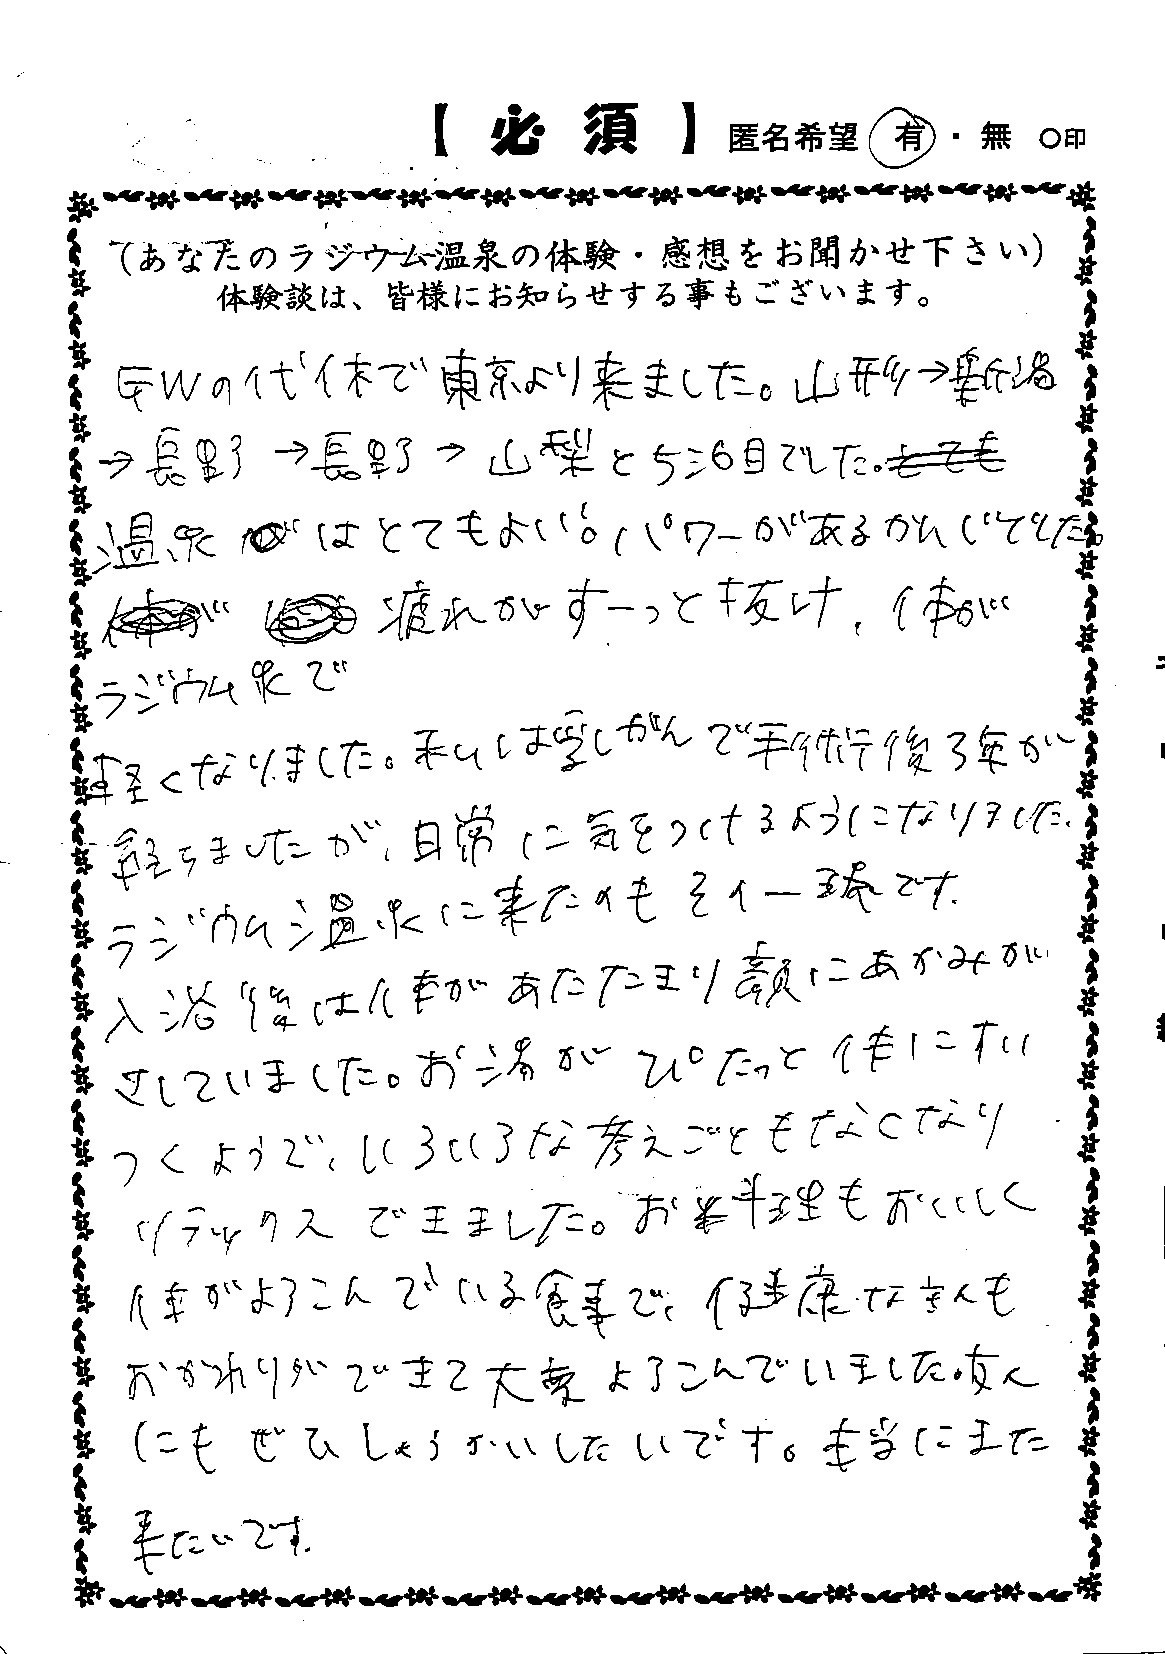 【必須】 匿名希望 有・無 ○印
(あなたのラジウム温泉の体験・感想をお聞かせ下さい)
体験談は、皆様にお知らせする事もございます。
GWの代休で東京より来ました。山形→新潟
→長野→長野→山梨と5泊6日でした。とても
温泉はとてもよい。パワーがあるかんじでした。
疲れがすーっと抜け、体が
ラジウム泉で
軽くなりました。私は乳がんで手術後3年が
経ちましたが、日常に気をつけるようになりました。
ラジウム温泉に来たのもその一環です。
入浴後は体があたたまり顔にあかみが
さしていました。お湯がぴたっと体にすい
つくようで、いろいろな考えごともなくなり
リラックスできました。お料理もおいしく
体がよろこんでいる食事で、健康な主人も
おかわりができて大変よろこんでいました。友人
にもぜひしょうかいしたいです。本当にまた
来たいです。